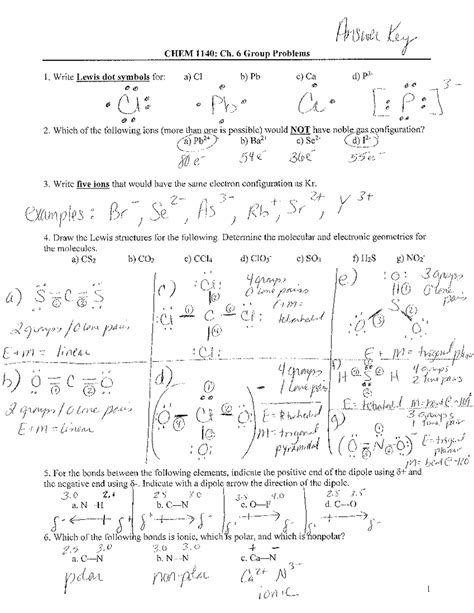 Answer Key
CHEM 1140: Ch. 6 Group Problems
1. Write Lewis dot symbols for: a) Cl b) Pb c) Ca d) P³⁻
Cl Pb Ca [P]³⁻
2. Which of the following ions (more than one is possible) would NOT have noble gas configuration?
a) Pb²⁺ b) Ba²⁺ c) Se²⁻ d) I²⁻
80 e⁻ 54 e⁻ 36 e⁻ 55 e⁻
3. Write five ions that would have the same electron configuration as Kr.
examples: Br⁻, Se²⁻, As³⁻, Rb⁺, Sr²⁺, Y³⁺
4. Draw the Lewis structures for the following. Determine the molecular and electronic geometries for
the molecules.
a) CS₂ b) CO₂ c) CCl₄ d) ClO₃⁻ e) SO₃ f) H₂S g) NO₂⁻
a) S = C = S
2 groups / 0 lone pairs
E + m = linear
b) O = C = O
2 groups / 0 lone pairs
E + m = linear
c) :Cl:
:Cl - C - Cl:
:Cl:
4 groups
0 lone pairs
E + m =
tetrahedral
d) O - Cl - O
4 groups
1 lone pair
E = tetrahedral
m = trigonal
pyramidal
e) O
S
O O
3 groups
0 lone pairs
E + m = trigonal planar
f) H S H
4 groups
2 lone pairs
E = tetrahedral m = bent
g) (O - N = O)⁻
3 groups
1 lone pair
E = trigonal
planar
m = bent @ ~120°
5. For the bonds between the following elements, indicate the positive end of the dipole using δ+ and
the negative end using δ-. Indicate with a dipole arrow the direction of the dipole.
3.0 2.1 2.5 3.0 3.5 4.0 2.5 3.5
a. N–H b. C—N c. O—F d. C—O
δ⁻ δ⁺ δ⁺ δ⁻ δ⁺ δ⁻ δ⁺ δ⁻
6. Which of the following bonds is ionic, which is polar, and which is nonpolar?
2.5 3.0 3.0 3.0 + -
a. C—N b. N – N c. Ca—N
polar non-polar Ca²⁺ N³⁻
ionic
1